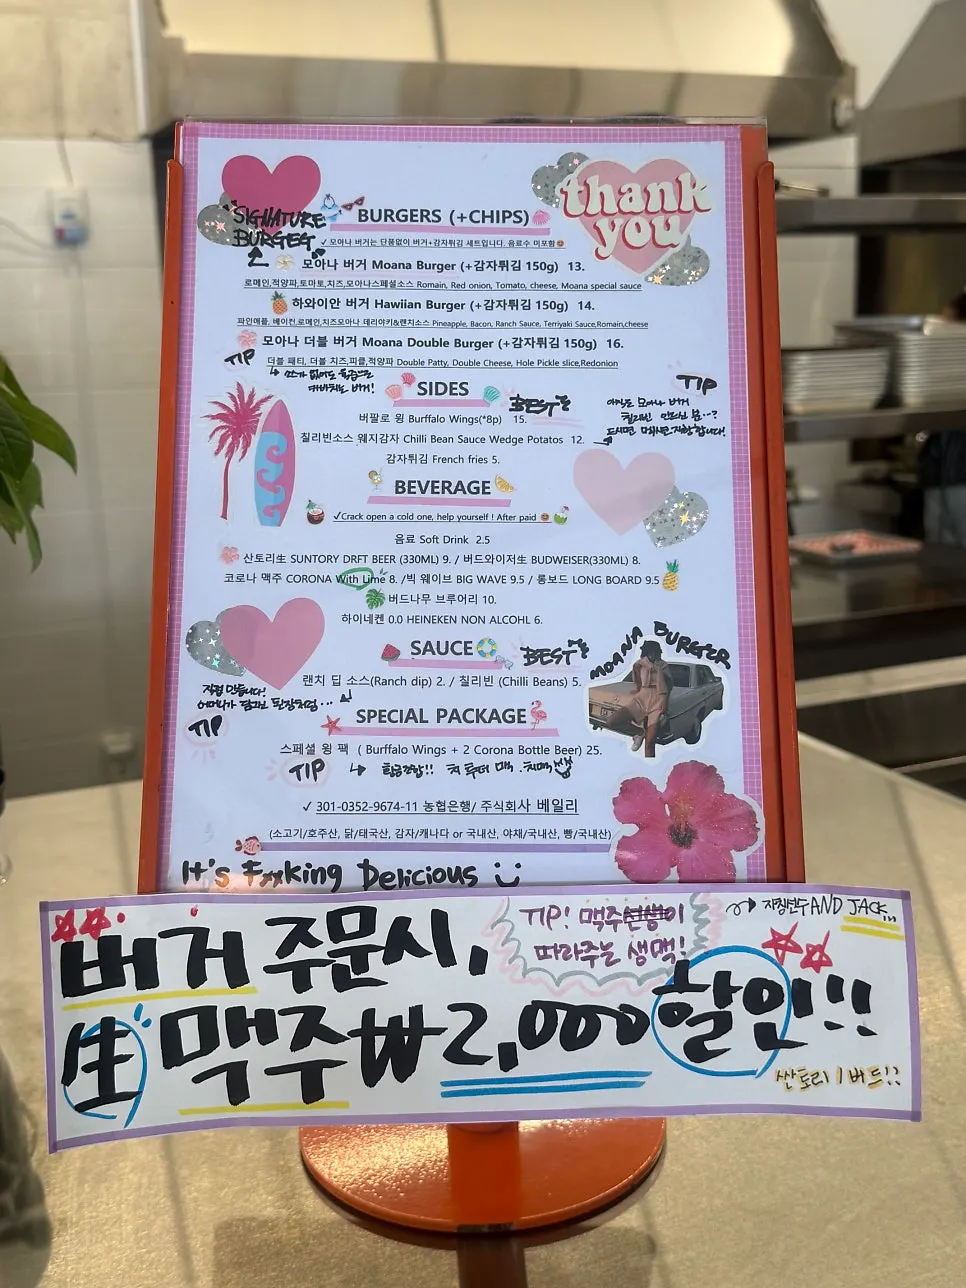 thank
you
SIGNATURE
BURGEG
BURGERS (+CHIPS)
✓ 모아나 버거는 단품없이 버거+감자튀김 세트입니다. 음료수 미포함
모아나 버거 Moana Burger (+감자튀김 150g) 13.
로메인,적양파,토마토,치즈,모아나스페셜소스 Romain, Red onion, Tomato, cheese, Moana special sauce
하와이안 버거 Hawiian Burger (+감자튀김 150g) 14.
파인애플, 베이컨,로메인,치즈모아나 데리야키&랜치소스 Pineapple, Bacon, Ranch Sauce, Terriyaki Sauce,Romain,cheese
모아나 더블 버거 Moana Double Burger (+감자튀김 150g) 16.
TIP
더블 패티, 더블 치즈,피클,적양파 Double Patty, Double Cheese, Hole Pickle slice,Redonion
버거!
SIDES
BEST
TIP
모아나 버거
버팔로 윙 Burffalo Wings(*8p) 15.
칠리빈소스 웨지감자 Chilli Bean Sauce Wedge Potatos 12.
감자튀김 French fries 5.
BEVERAGE
✓Crack open a cold one, help yourself ! After paid
음료 Soft Drink 2.5
산토리生 SUNTORY DRFT BEER (330ML) 9. / 버드와이저生 BUDWEISER(330ML) 8.
코로나 맥주 CORONA With Lime 8. /빅 웨이브 BIG WAVE 9.5 / 롱보드 LONG BOARD 9.5
버드나무 브루어리 10.
하이네켄 0.0 HEINEKEN NON ALCOHL 6.
SAUCE
BEST
MOANA BURGER
랜치 딥 소스(Ranch dip) 2. / 칠리빈 (Chilli Beans) 5.
직접 만듭니다!
어머니가 담그신 된장처럼...
TIP
SPECIAL PACKAGE
스페셜 윙 팩 ( Burffalo Wings + 2 Corona Bottle Beer) 25.
TIP
황금조합!!
✓ 301-0352-9674-11 농협은행/ 주식회사 베일리
(소고기/호주산, 닭/태국산, 감자/캐나다 or 국내산, 야채/국내산, 빵/국내산)
It's F**king Delicious
버거 주문시,
TIP! 맥주선생이
따라주는 생맥!
AND JACK
生 맥주₩2,000할인!!
싼토리 / 버드!!